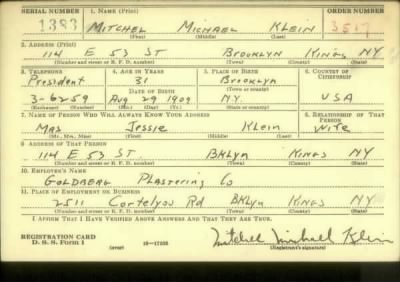 SERIAL NUMBER 1. NAME (Print) ORDER NUMBER
1383 MITCHEL MICHAEL KLEIN 3517
(First) (Middle) (Last)
2. ADDRESS (Print)
114 E 53 ST BROOKLYN KINGS NY
(Number and street or R. F. D. number) (Town) (County) (State)
3. TELEPHONE 4. AGE IN YEARS 5. PLACE OF BIRTH 6. COUNTRY OF CITIZENSHIP
President 31 Brooklyn
DATE OF BIRTH (Town or county)
3-6259 Aug 29 1909 NY USA
(Exchange) (Number) (Mo.) (Day) (Yr.) (State or country)
7. NAME OF PERSON WHO WILL ALWAYS KNOW YOUR ADDRESS 8. RELATIONSHIP OF THAT PERSON
Mrs Jessie Klein Wife
(Mr., Mrs., Miss) (First) (Middle) (Last)
9. ADDRESS OF THAT PERSON
114 E 53 ST BKLYN KINGS NY
(Number and street or R. F. D. number) (Town) (County) (State)
10. EMPLOYER'S NAME
GOLDBERG PLASTERING Co
11. PLACE OF EMPLOYMENT OR BUSINESS
2511 Cortelyou Rd BKLYN KINGS NY
(Number and street or R. F. D. number) (Town) (County) (State)
I AFFIRM THAT I HAVE VERIFIED ABOVE ANSWERS AND THAT THEY ARE TRUE.
REGISTRATION CARD
D. S. S. Form 1 (over) 16—17105 Mitchel Michael Klein
(Registrant's signature)